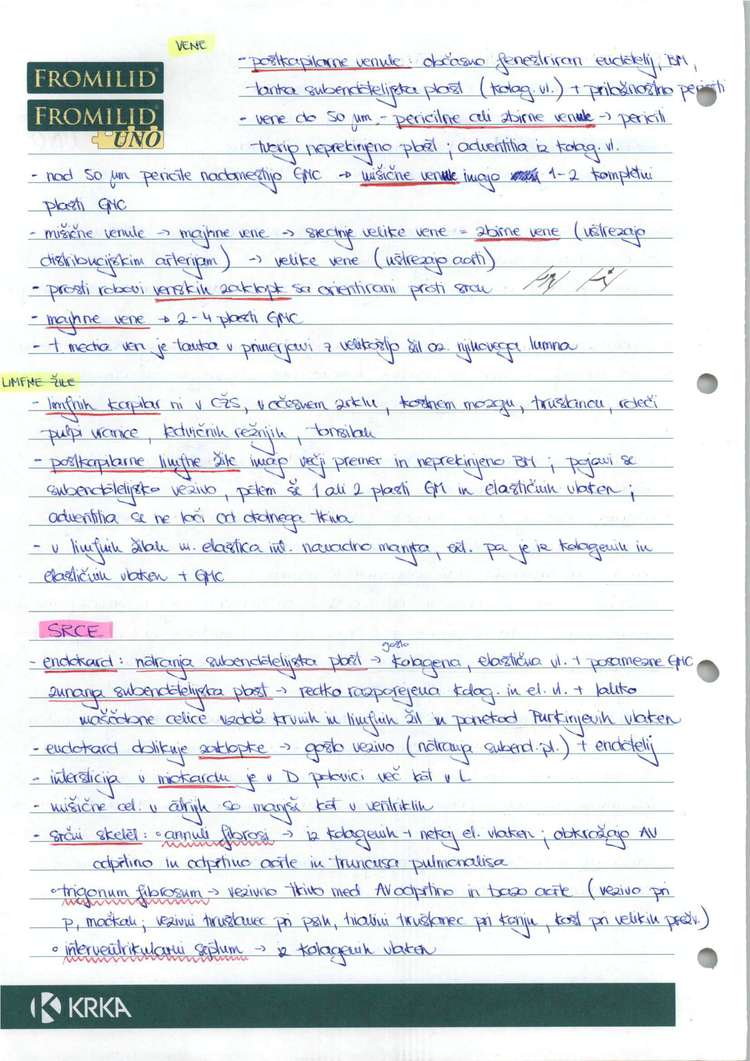 VENE
FROMILID®
FROMILID®
UNO
- postkapilarne venule : občasno fenestriran endotelij, BM,
tanka subendotelijska plast (kolag. vl.) + pribižnostno periciti
- vene do 50 µm - pericitne ali zbirne venule → periciti
tvorijo neprekinjeno plast ; adventitia iz kolag. vl.
- nad 50 µm pericite nadomestijo GMC → mišične venule imajo 1-2 kompletni
plasti GMC
- mišične venule → majhne vene → srednje velike vene = zbirne vene (ustrezajo
distribucijskim arterijam) → velike vene (ustrezajo aorti)
- prosti robovi venskih zaklopk so orientirani proti srcu
- majhne vene → 2-4 plasti GMC
- t. media ven je tanka v primerjavi z velikostjo žil oz. njihovega lumna
LIMFNE ŽILE
- limfnih kapilar ni v CŽS, v očesnem zrklu, kostnem mozgu, hrustancu, rdeči
pulpi vranice, ledvičnih režnjih, tonsilah
- postkapilarne limfne žile imajo večji premer in neprekinjeno BM ; pojavi se
subendotelijsko vezivo, potem še 1 ali 2 plasti GM in elastičnih vlaken ;
adventitia se ne loči od okolnega tkiva
- v limfnih žilah m. elastica int. navadno manjka, ext. pa je iz kolagenih in
elastičnih vlaken + GMC
SRCE
- endokard : notranja subendotelijska plast → gosto kolagena, elastična vl. + posamezne GMC
zunanja subendotelijska plast → redko razporejena kolag. in el. vl. + lahko
maščobne celice vzdolž krvnih in limfnih žil in ponekod Purkinjevih vlaken
- endokard oblikuje zaklopke → gosto vezivo (notranja subend. pl.) + endotelij
- intersticija v miokardu je v D polovici več kot v L
- mišične cel. v atrijih so manjše kot v ventriklih
- srčni skelet : ∘ annuli fibrosi → iz kolagenih + nekaj el. vlaken ; obkrožajo AV
odprtino in odprtino aorte in truncusa pulmonalisa
∘ trigonum fibrosum → vezivno tkivo med AV odprtino in bazo aorte (vezivo pri
p, mačkah ; vezivni hrustanec pri psih, hialini hrustanec pri konju, kost pri velikih prežv.)
∘ interventrikularni septum → iz kolagenih vlaken
KRKA